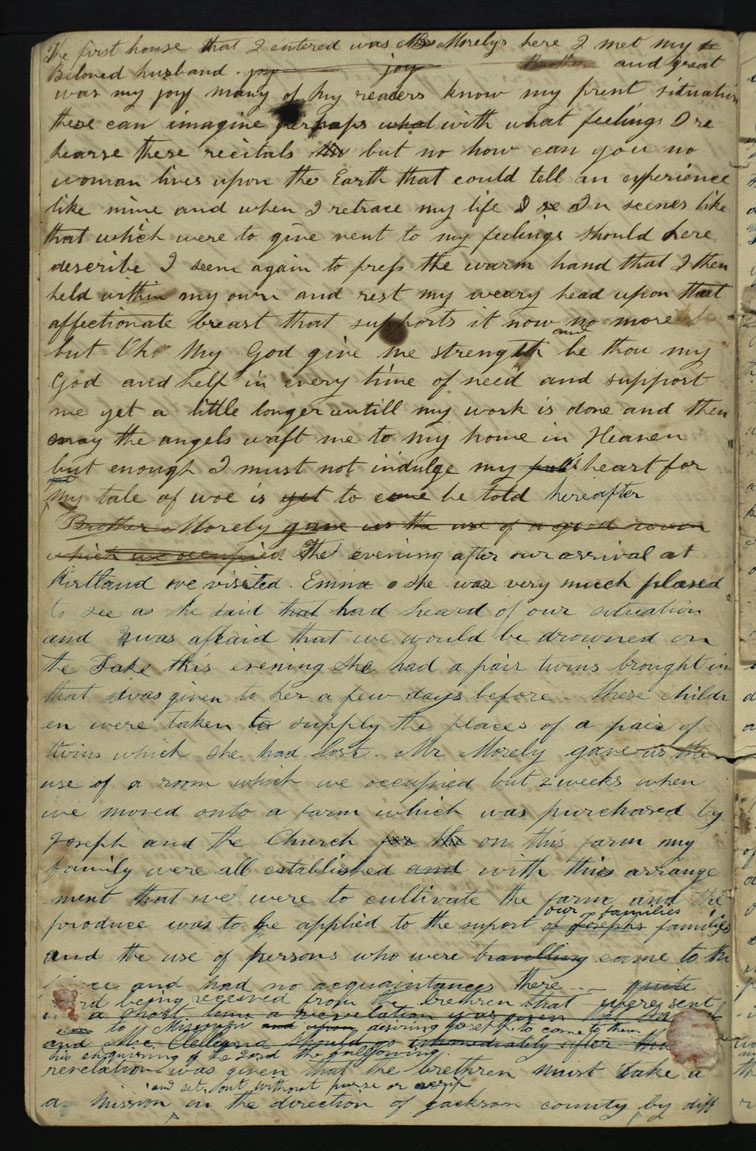 The first house that I entered was Mr Morelys here I met my
Beloved husband. joy joy Brother and great
was my joy many of my readers know my prent situation
these can imagine perhaps what with what feelings I re
hearse these recitals but no how can you no
woman lives upon the Earth that could tell an experience
like mine and when I retrace my life I se I in scenes like
that which were to give vent to my feelings should here
describe I seem again to press the warm hand that I then
held within my own and rest my weary head upon that
affectionate breast that supports it now no more
but Oho My God give me strength and be thou my
God and help in every time of need and support
me yet a little longer untill my work is done and then
may the angels waft me to my home in Heaven
but enough I must not indulge my full heart for
my tale of woe is yet to come be told hereafter
Brother Morely gave us the use of a good room
which we occupied The evening after our arrival at
Kirtland we visited. Emma she was very much plased
to see as she said that had heard of our situation
and was afraid that we would be drowned on
the Lake this evening she had a pair twins brought in
that was given to her a few days before. these childr
en were taken to supply the places of a pair of
twins which she had lost. Mr Morely gave us the
use of a room which we occupied but 2 weeks when
we moved onto a farm which was purchased by
Joseph and the Church for the on this farm my
family were all established and with this arrange
ment that we were to cultivate the farm and the
our families
produce was to be applied to the suport of josephs families
and the use of persons who were travelling came to the
and had no acquaintances there quite
being received from the brethren that were sent
a short time a revelation was given
to Missouri and upon desiring Joseph to come to them
and Mc. Clellend should go immediately after
his enquiring of the Lord the following
revelation was given that the brethren must take a
and set out without purse or scrip
a mission in the direction of Jackson county by diff